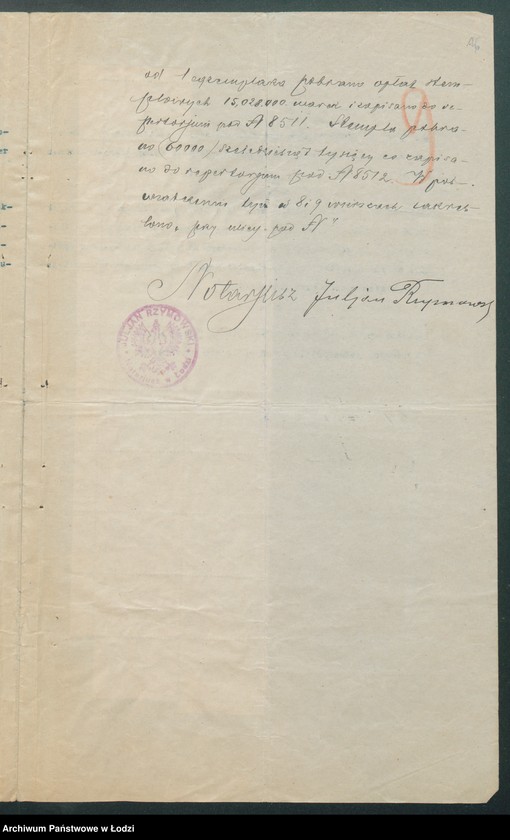 od 1 egzemplarza pobrano opłat stem-
plowych 15,020.000 marek i zapisano do re-
pertorjum pod № 8511. Stempla pobra-
no 60000 /sześćdziesiąt tysięcy co zapisa-
no do repertorjum pod № 8512. W po
8 i 9 wierszach zakreś-
lono, pod №
Notarjusz Juljan Rzymowski
JULJAN RZYMOWSKI
w Łodzi
Archiwum Państwowe w Łodzi